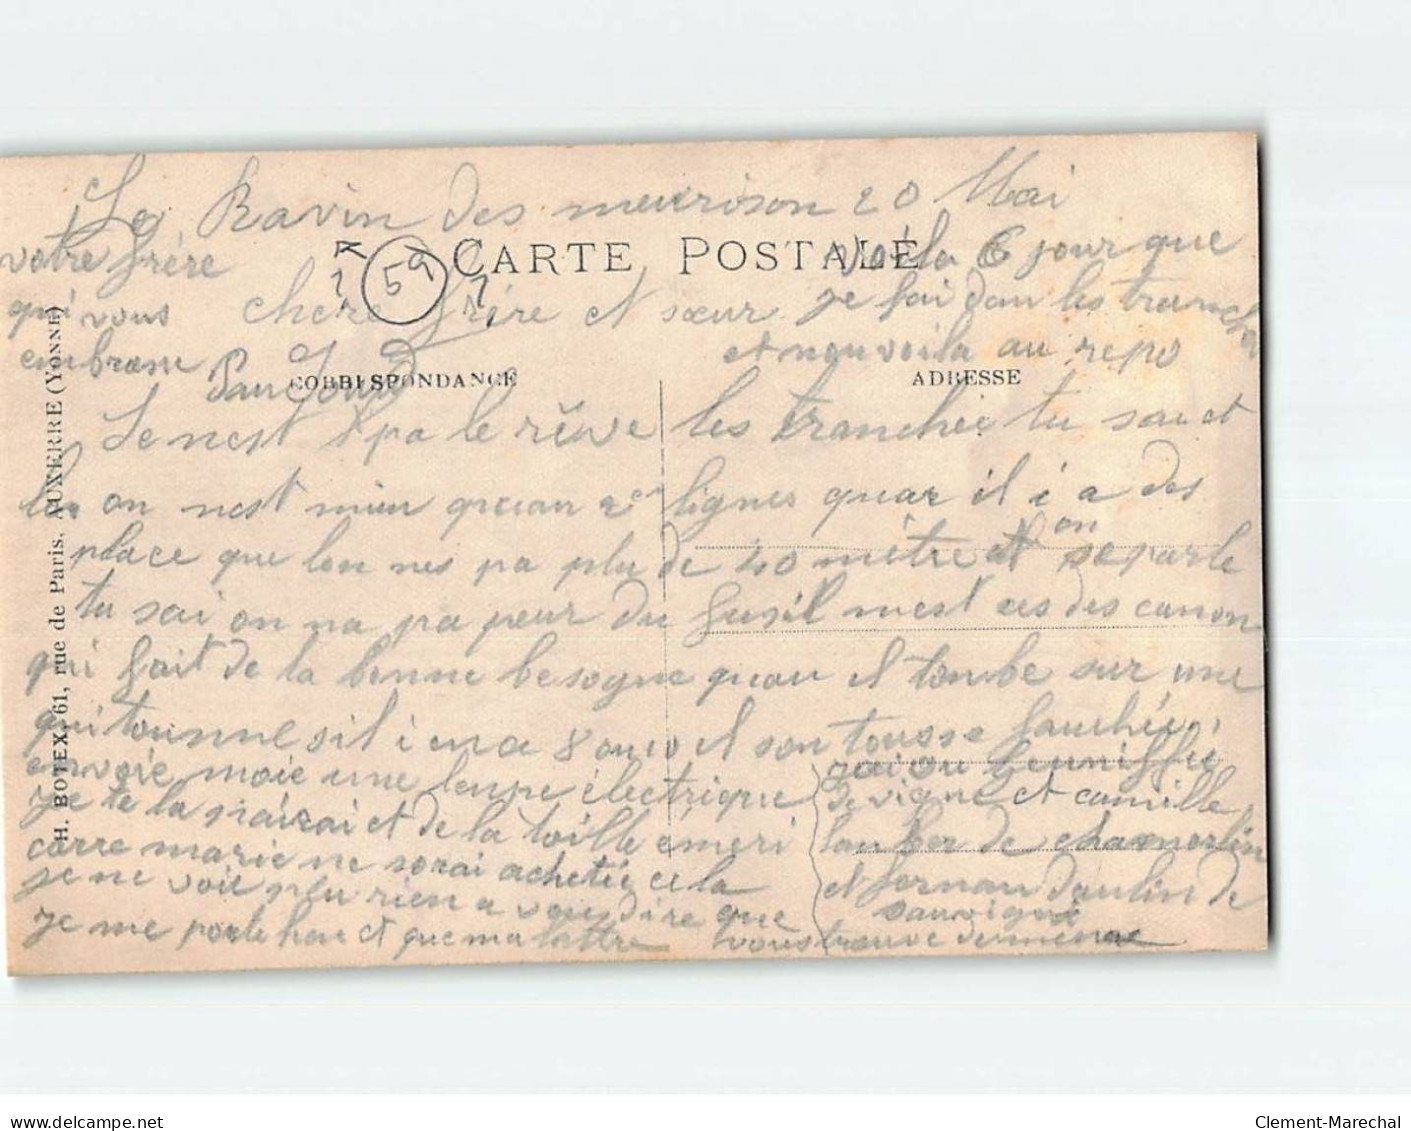 Le Ravin des meurison 20 Mai
CARTE POSTALE
59
chere frère et sœur
voila 6 jour que
je sui dan les tranchée
et nou voila au repo
CORRESPONDANCE
ADRESSE
Se nest pa le rêve les tranchée tu sai et
la on nest mieu quan 2e lignes quar il i a des
place que lon nes pa plu de 40 mètre et on se parle
tu sai on na pa peur du fusil mest ces des canon
qui fait de la bonne besogne quan il tombe sur une
qui tourne sil i en a 8 ou 10 il son tousse fauchée,
envoie moie une lanpe électrique
je te la pairai et de la toille émeri
carre marie ne sorai achetée cela
je ne voie plu rien a vous dire que
je me porte bien et que ma lettre vous trouve de meme
jai vu Genniffié
Sevigne et camille
lamber de chamerlin
et fernan daulin de
sauvigne
votre frère
qui vous
embrasse
H. BOTEX, 61, rue de Paris, AUXERRE (YONNE)
Clement-Marechal